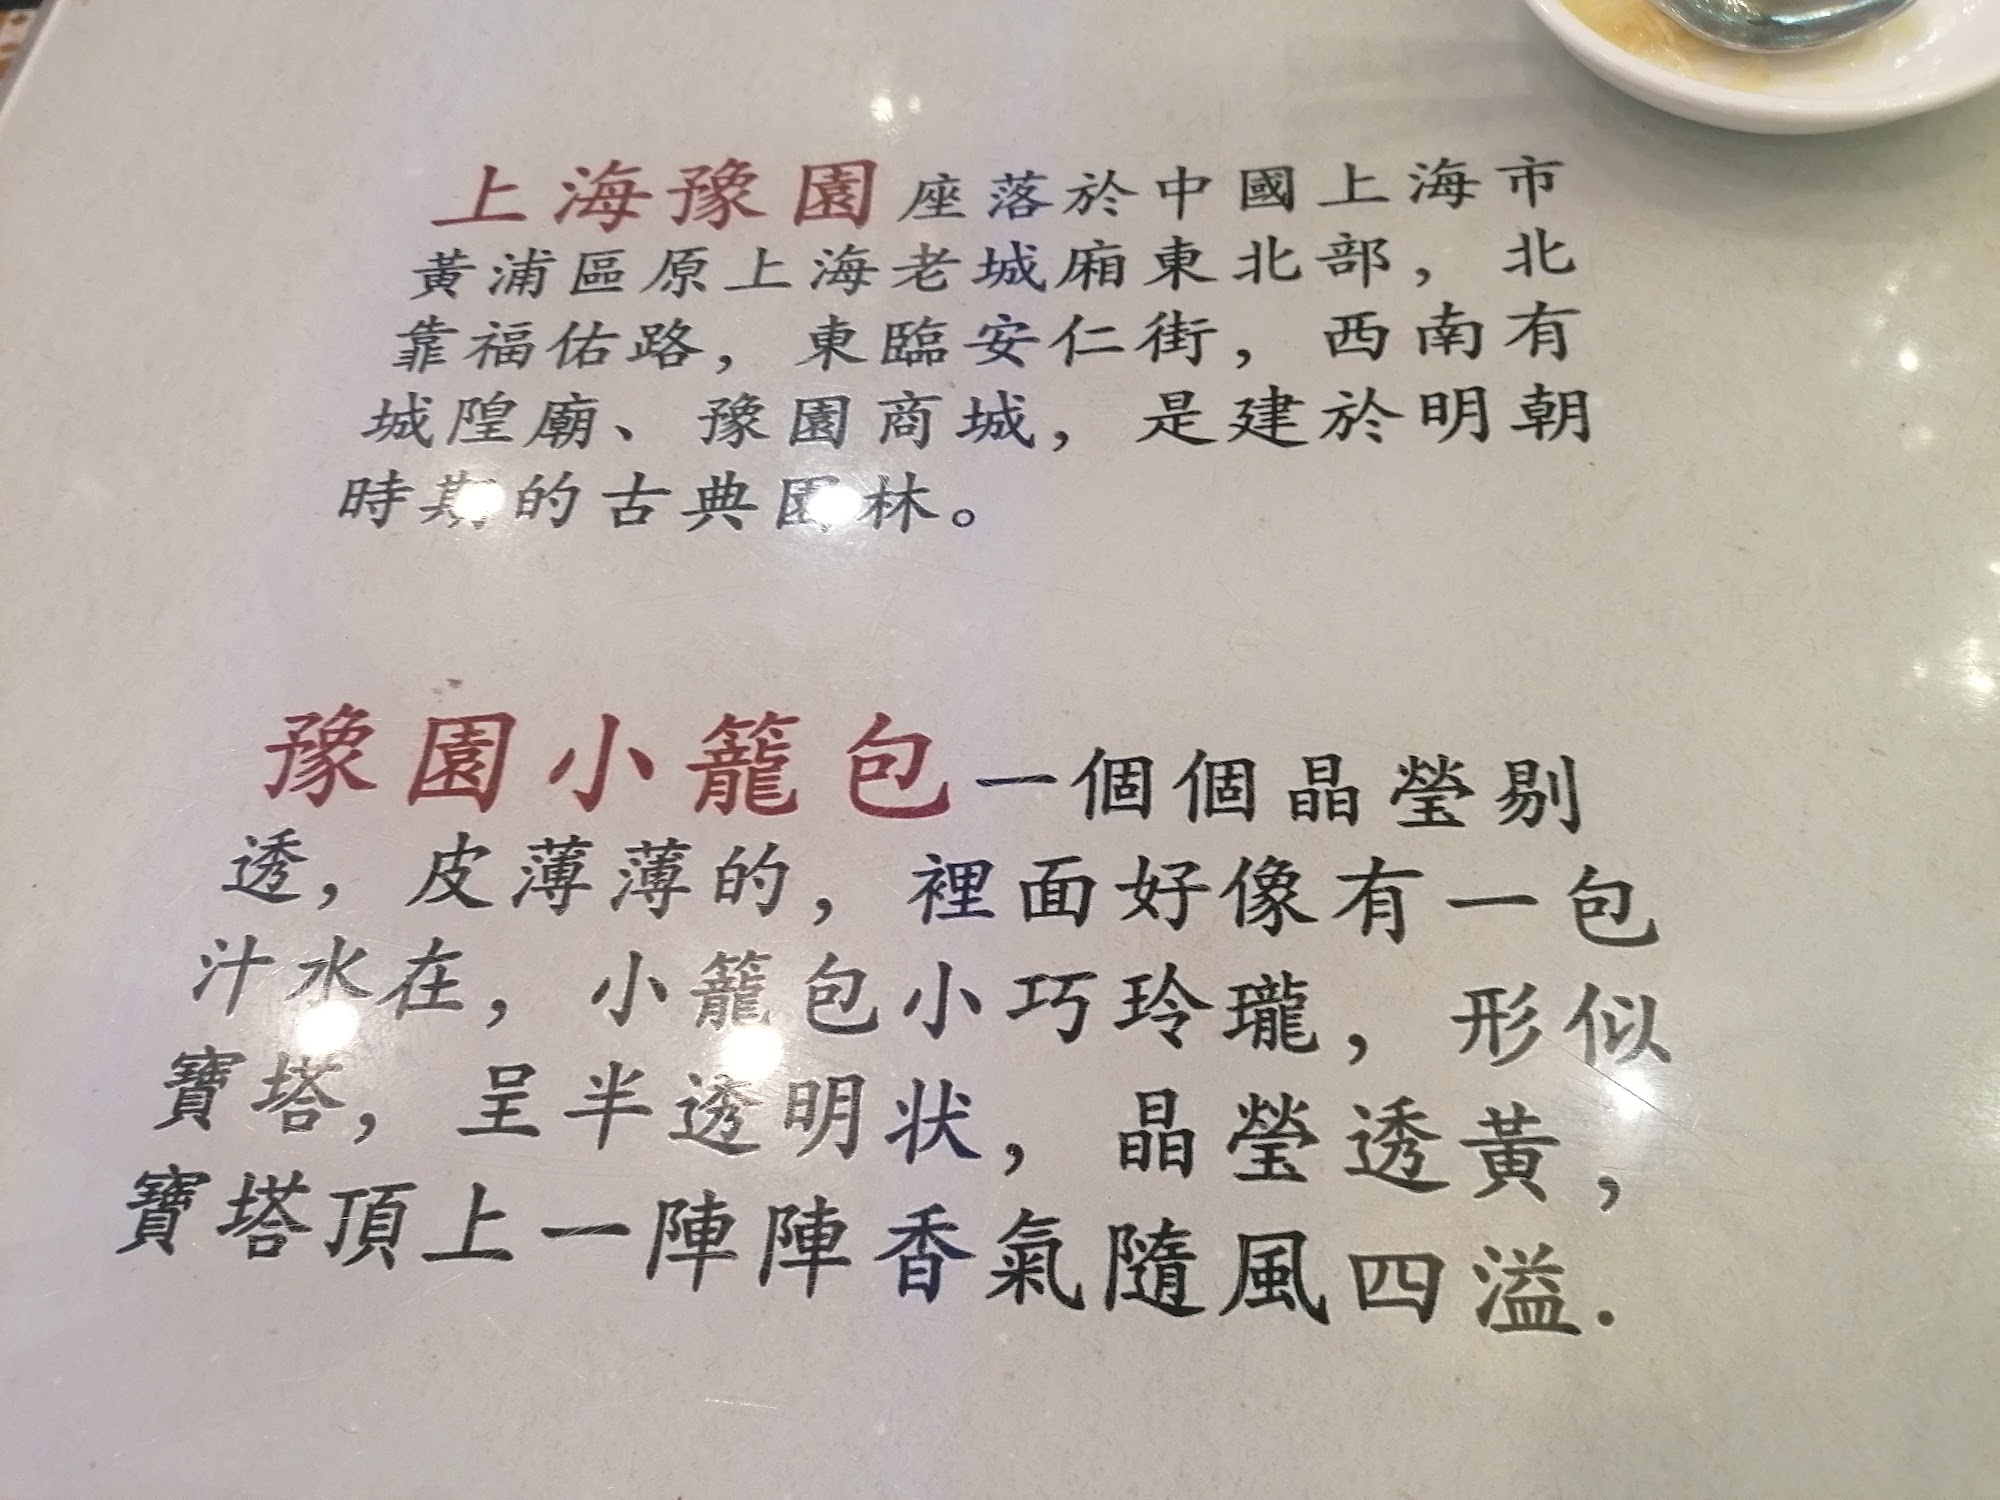 上海豫園座落於中國上海市
黃浦區原上海老城廂東北部，北
靠福佑路，東臨安仁街，西南有
城隍廟、豫園商城，是建於明朝
時期的古典園林。
豫園小籠包一個個晶瑩剔
透，皮薄薄的，裡面好像有一包
汁水在，小籠包小巧玲瓏，形似
寶塔，呈半透明状，晶瑩透黃，
寶塔頂上一陣陣香氣隨風四溢.